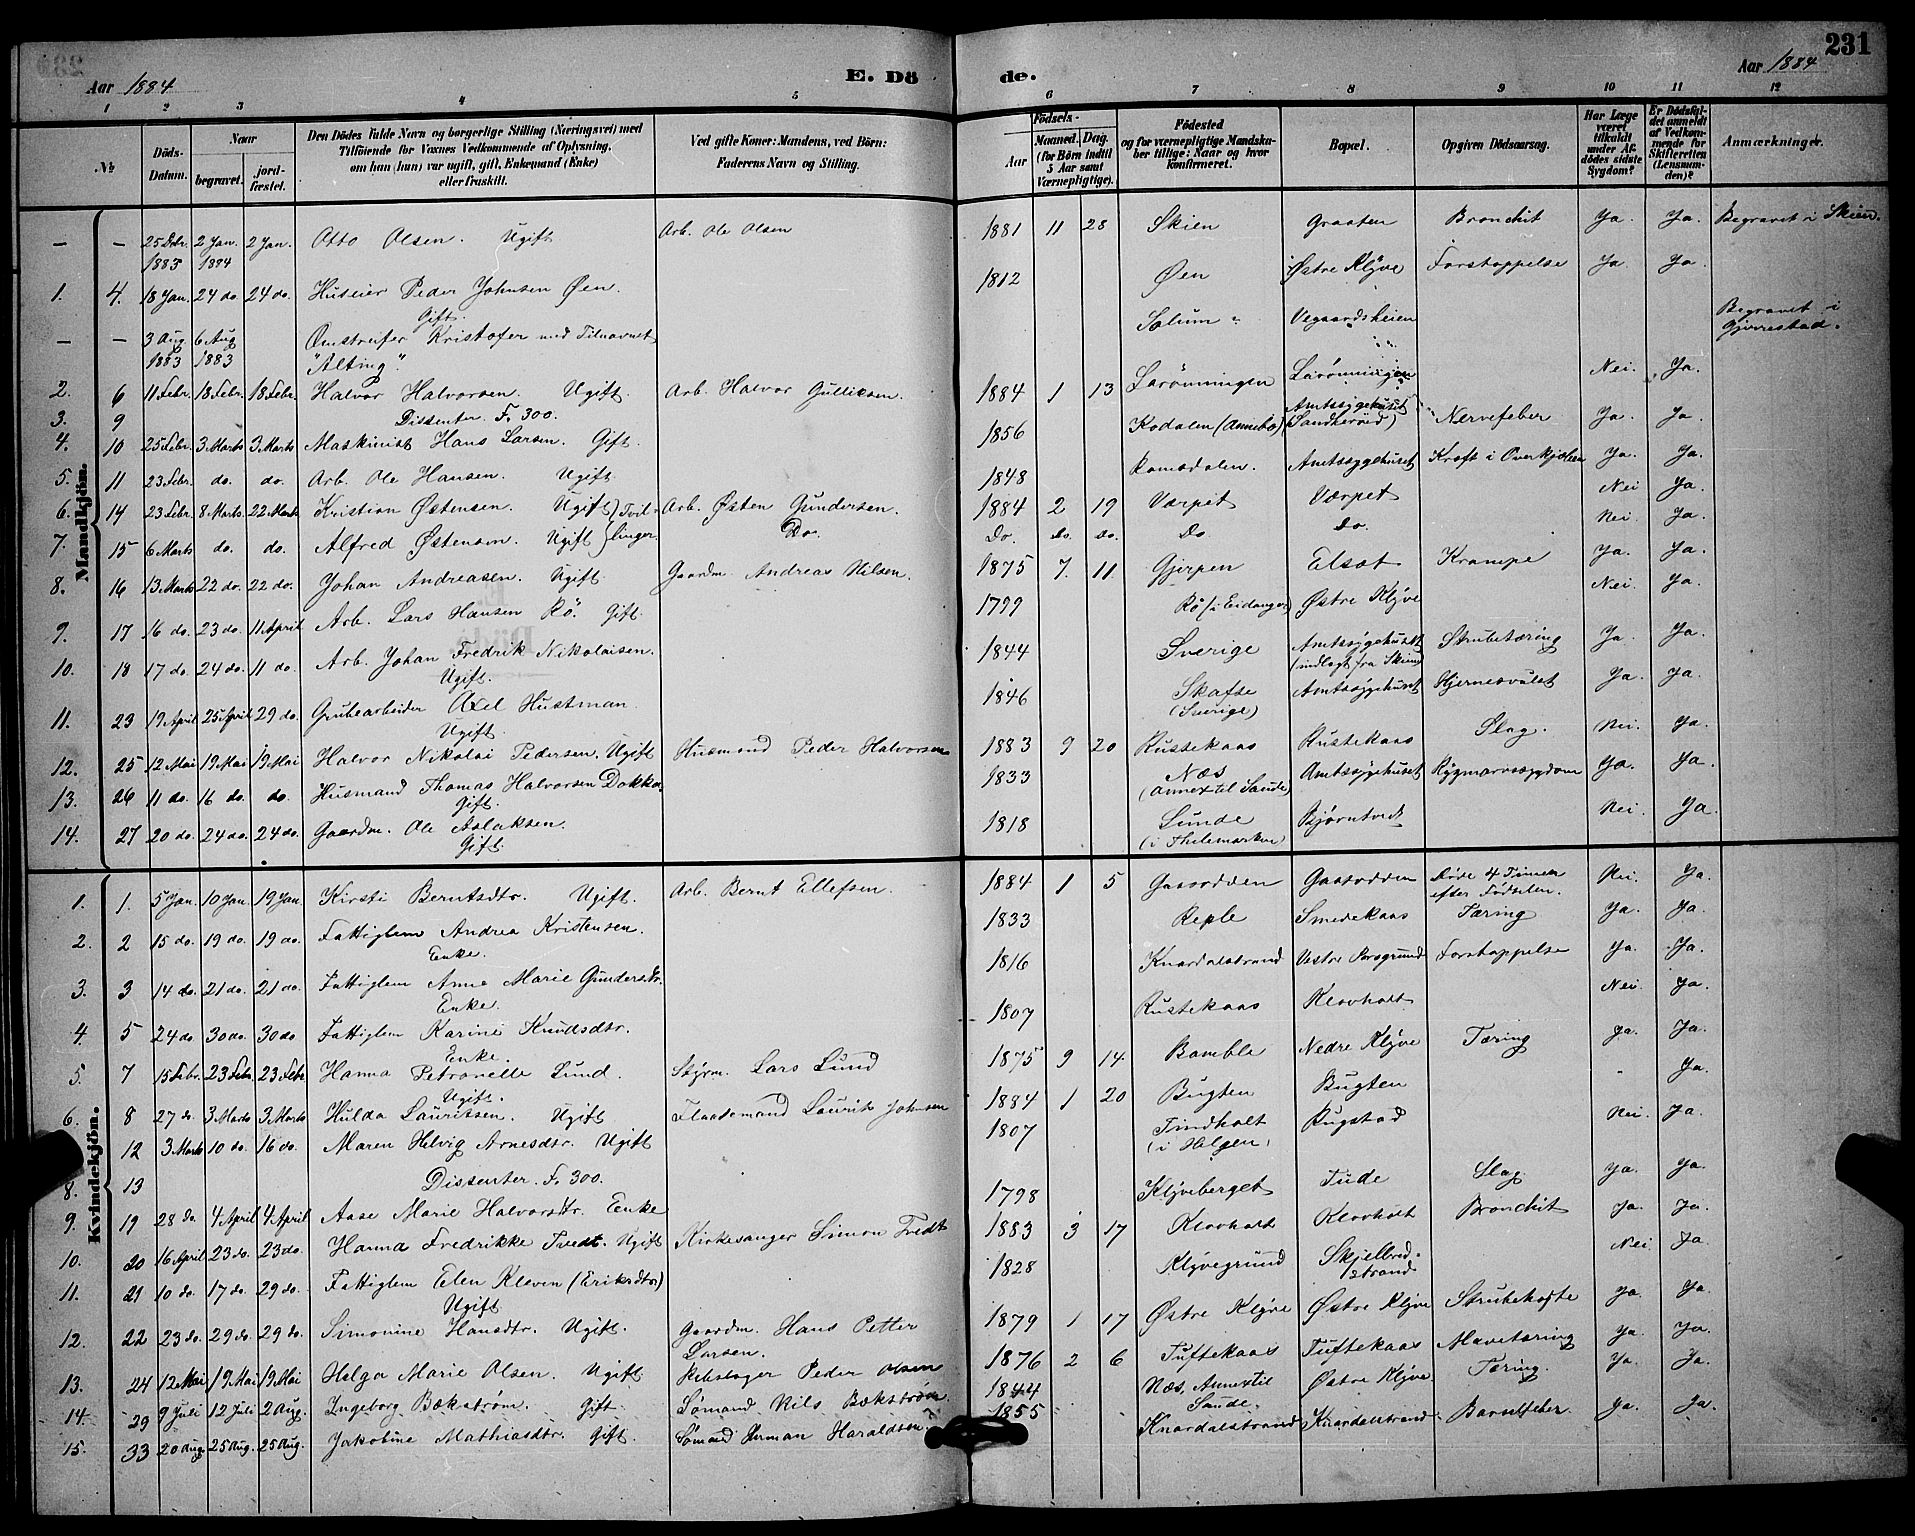 Aar 1884
E. Dö
de.
Aar 1884
231
1 2 3 4 5 6 7 8 9 10 11 12
№ Döds-Datum. Naar begravet. jord-fæstet. Den Dödes fulde Navn og borgerlige Stilling (Næringsvei) med Tilföiende for Voxnes Vedkommende af Oplysning, om han (hun) var ugift, gift, Enkemand (Enke) eller fraskilt. Ved gifte Koner: Mandens, ved Börn: Faderens Navn og Stilling. Födsels- Aar Maaned. Dag. (for Börn indtil 5 Aar samt Værnepligtige). Födested og for værnepligtige Mandskaber tillige: Naar og hvor konfirmeret. Bopæl. Opgiven Dödsaarsag. Har Læge været tilkaldt under Afdödes sidste Sygdom? Er Dödsfaldet anmeldt af Vedkommende for Skifteretten (Lensmanden)? Anmærkninger.
Mandkjön.
— — 25 Dcbr. 1883 2 Jan. 1884 2 Jan. Otto Olsen. Ugift Arb. Ole Olsen 1881 11 28 Skien Graaten Bronchit Ja. Ja. Begravet i Skien.
1. 4. 18 Jan. 24 do. 24 do. Huseier Peder Johnsen Øen. Gift. 1812 Øen Østre Klyve Forstoppelse Ja. Ja.
— — 3 Aug 1883 6 Aug 1883 Omstreifer Kristofer med Tilnavnet "Alting". Solum Vegaardsheien Begravet i Gjerrestad.
2. 6 11 Febr. 18 Febr. 18 Febr. Halvor Halvorsen. Ugift. Arb. Halvor Gulliksen. 1884 1 13 Larönningen Larönningen Nei. Ja.
3. 9 Dissenter. F. 300.
4. 10 25 Febr. 3 Marts 3 Marts Maskinist Hans Larsen. Gift. 1856 Kodalen (Annebo) Amtssygehuset (Sandherred) Nervefeber Ja. Ja.
5. 11 23 Febr. do. do. Arb. Ole Hansen. Ugift. 1848 Romsdalen. Amtssygehuset Kræft i Overkjæben Ja. Ja.
6. 14 23 Febr. 8 Marts 22 Marts Kristian Østensen. Ugift Tvillinger. Arb. Østen Gundersen. 1884 2 19 Værpet Værpet Nei Ja.
7. 15 6 Marts do. do. Alfred Østensen. Ugift Do. Do. do. do. Do do. Nei. Ja.
8. 16 13 Marts 22 do. 22 do. Johan Andreasen. Ugift. Gaardm. Andreas Nilsen. 1875 7. 11. Gjerpen Elsæt Krampe Ja. Ja.
9. 17 16 do. 23 do. 11 April Arb. Lars Hansen Rö. Gift. 1799 Rö (i Eidanger) Østre Klyve Nei. Ja.
10. 18 17 do. 24 do. 11 do. Arb. Johan Fredrik Nikolaisen. Ugift. 1844 Sverige Amtssygehuset (indlagt fra Skien) Strubetæring Ja. Ja.
11. 23 19 April 25 April 29 do. Grubearbeider Axel Hustman. Ugift. 1846 (Sverige) Amtssygehuset Hjernesvulst Ja. Ja.
12. 25 12 Mai 19 Mai 19 Mai Halvor Nikolai Pedersen. Ugift Husmand Peder Halvorsen 1883 9 20 Rustekaas Rustekaas Slag. Nei. Ja.
13. 26 11 do. 16 do. do. Husmand Thomas Halvorsen Dokka. Gift. 1833 Næs (Annex til Saude) Amtssygehuset Rygmarvssygdom Ja. Ja.
14. 27 20 do. 24 do. 24 do. Gaardm. Ole Aslaksen. Gift. 1818 Lunde (i Thelemarken) Bjørntvedt Nei. Ja
Kvindekjön.
1. 1. 5 Jan. 10 Jan. 19 Jan. Kirsti Berntsdtr. Ugift. Arb. Bernt Ellefsen. 1884 1 5 Gassodden Gassodden Døde 4 Timer efter Födselen. Nei. Ja.
2. 2 15 do. 19 do. 19 do. Fattiglem Andrea Kristensen. Enke. 1833 Reple Smedekaas Tæring Ja. Ja.
3. 3 14 do. 21 do. 21 do. Fattiglem Anne Marie Gundersdtr. Enke. 1816 Knardalstrand Vestre Porsgrund Forstoppelse Ja. Ja.
4. 5 24 do 30 do. 30 do Fattiglem Karine Knudsdtr. Enke. 1807 Rustekaas Klovholt Nei. Ja.
5. 7 15 Febr. 23 Febr. 23 Febr Hanna Petronelle Lund. Ugift. Styrm. Lars Lund 1875 9 14 Bamble Nedre Klyve Tæring Ja. Ja.
6. 8 27 do. 3 Marts 3 Marts Hulda Lauritsen. Ugift Flaademand Laurits Johnsen 1884 1 20 Bugten Bugten Ja.
12 3 Marts 10 do. 16 do. Maren Helvig Arnesdtr. Ugift 1807 Tindholt (i Helgen) Rugstad Nei. Ja.
8. 13 Dissenter. F. 300.
9. 19 28 do. 4 April 4 April Aase Marie Halvorsdtr. Enke 1798 Klyveberget Tude Slag Ja. Ja.
10. 20 16 April 23 do. 23 do. Hanna Fredrikke Tvedt. Ugift Kirkesanger Simon Tvedt 1883 3 17 Klovholt Klovholt Bronchit Ja. Ja.
11. 21 10 do. 17 do. 29 do. Fattiglem Elen Kleven (Eriksdtr) Ugift 1828 Klyvegrund Skjelbredstrand Nei. Ja.
12. 22 23 do. 29 do. 29 do. Simonine Hansdtr. Ugift. Gaardm. Hans Petter Larsen. 1879 1 17 Østre Klyve Østre Klyve Strubehoste Ja. Ja.
13. 24 12 Mai 19 Mai 19 Mai Helga Marie Olsen. Ugift. Rebslager Peder Olsen 1876 2 6 Tuftekaas Tuftekaas Mavetæring Ja. Ja.
14. 29 9 Juli 12 Juli 2 Aug. Ingeborg Bækström. Gift. Sömand Nils Bækström 1844 Næs, Annex til Saude. Østre Klyve Tæring. Ja. Ja.
15. 33 20 Aug. 25 Aug. 25 Aug. Jakobine Mathiasdtr. Gift. Sömand Herman Haraldsen. 1855 Knardalstrand Knardalstrand. Barselfeber Ja. Ja.